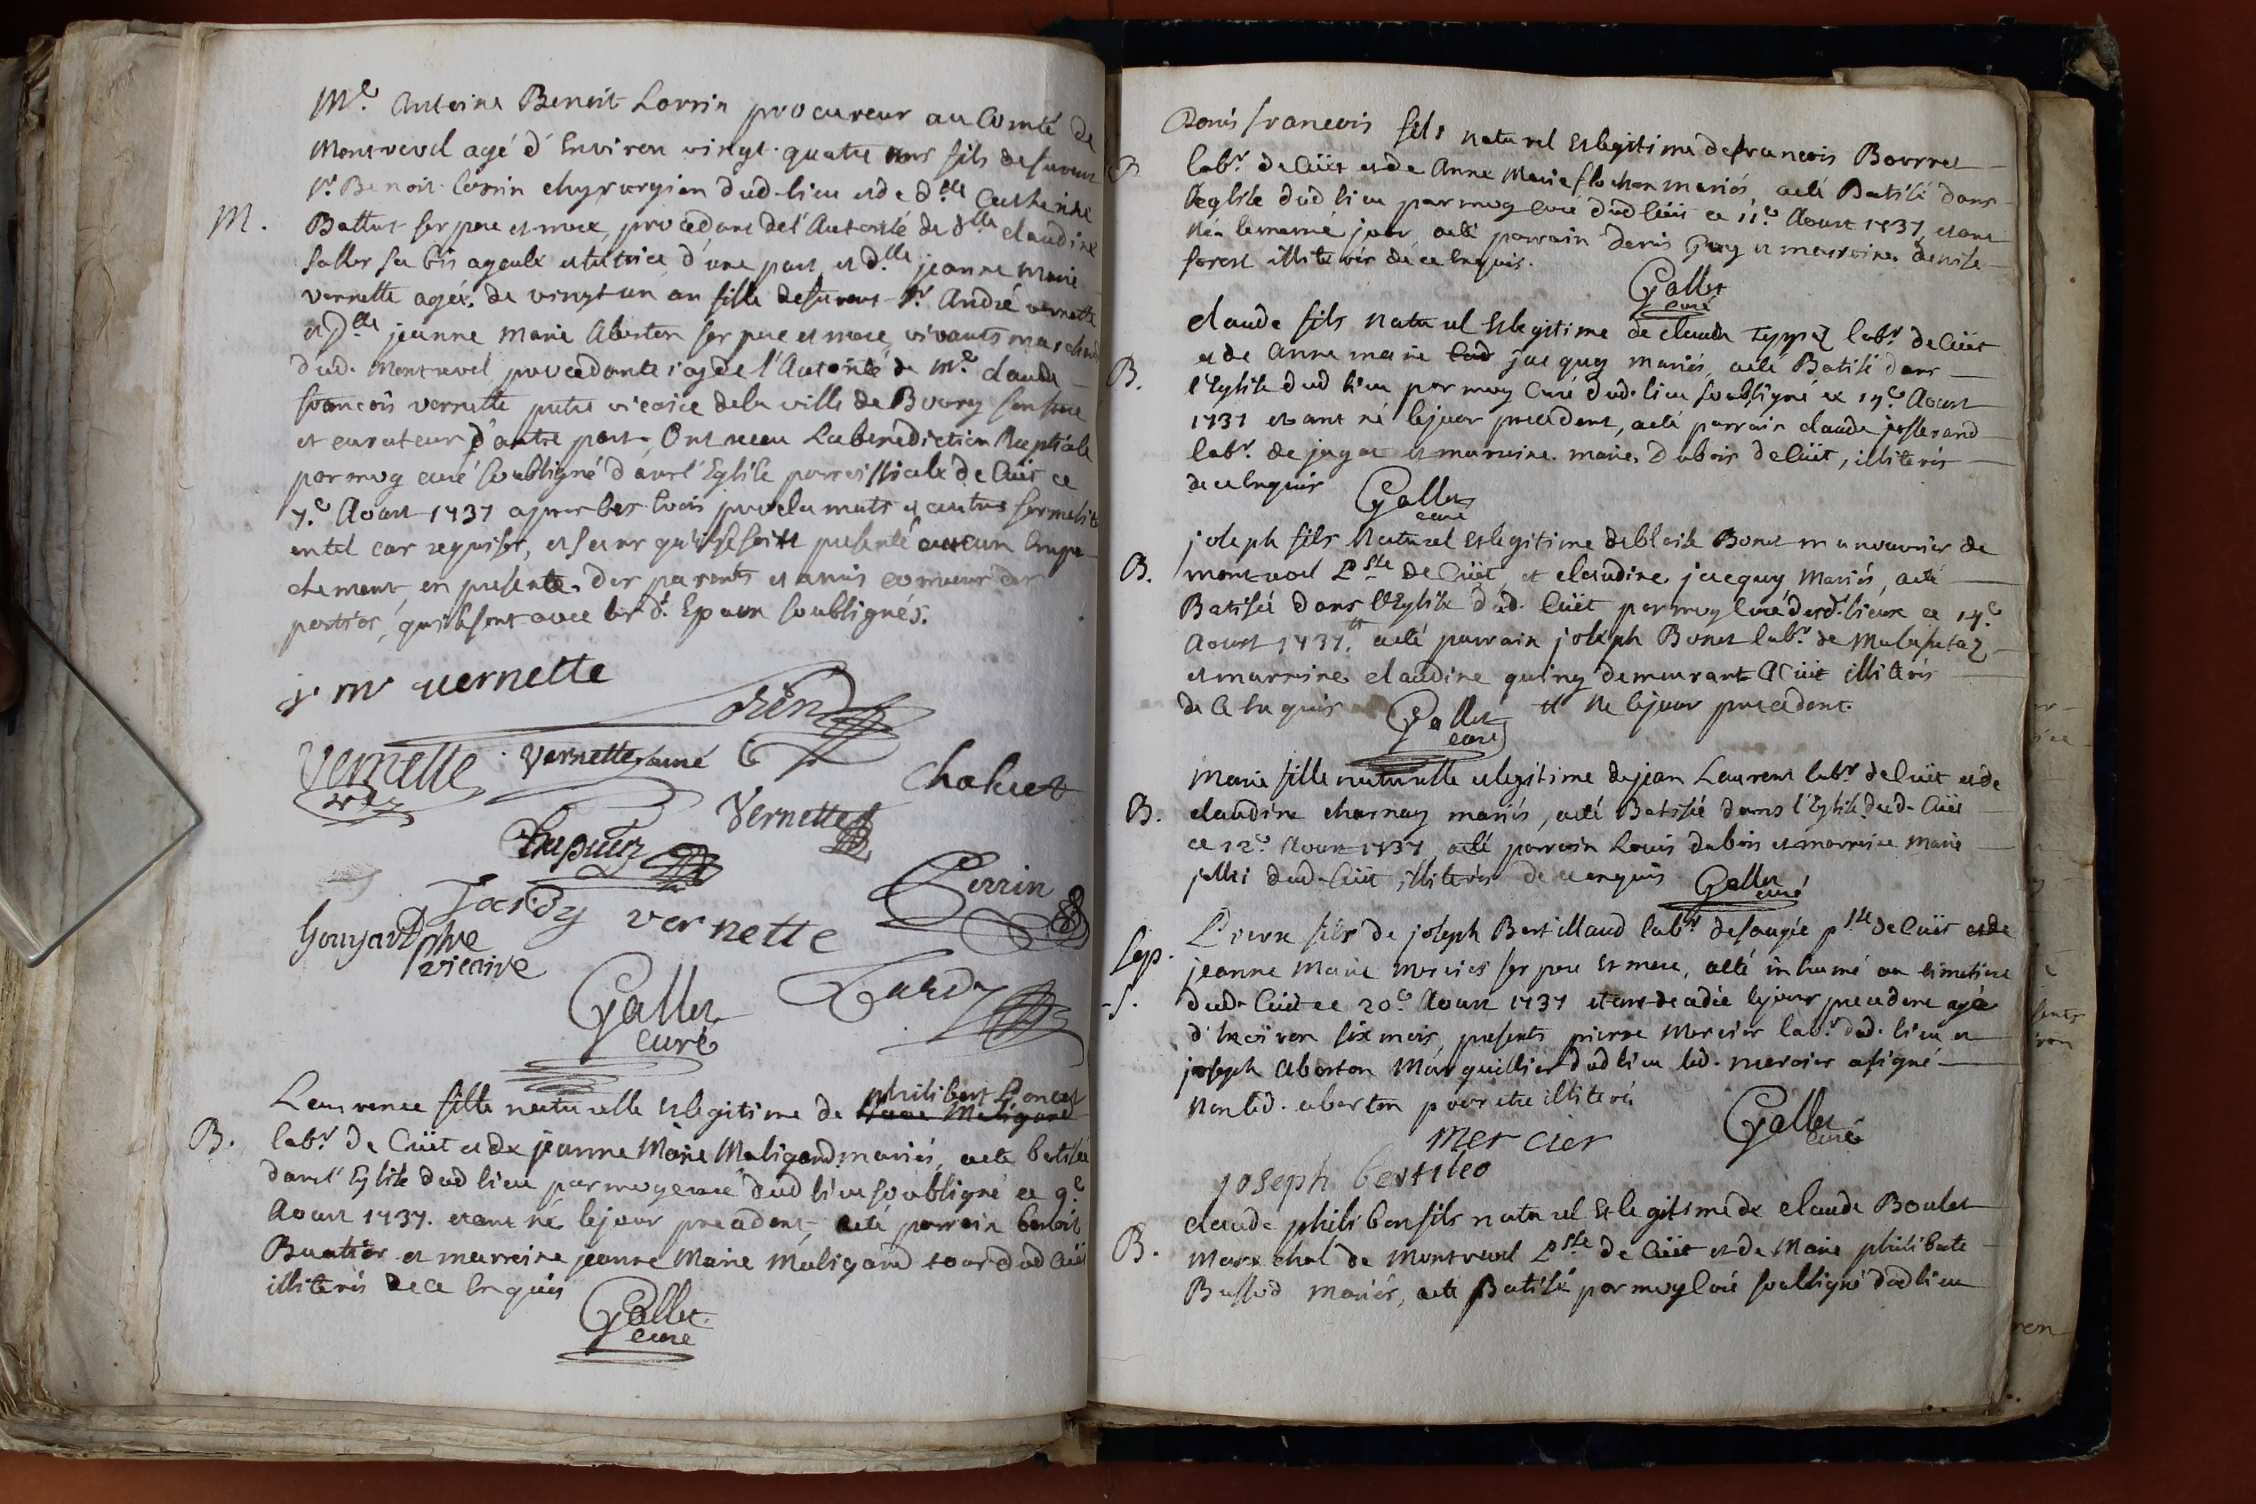 M.e Antoine Benoit Lorrin procureur au Comté de
Montrevel agé d'Environ vingt quatre ans fils de furent
sr. Benoit Lorrin chyrurgien dud. lieu et de d.elle Catherine
M. Battut ses pere et mere, procedant de l'Autorité de d.elle claudine
saller sa bis ayeule et tutrice d'une part, et d.lle jeanne Marie
vernette agée de vingt un an fille de furent sr. André vernette
et D.elle jeanne Marie Aberton ses pere et mere, vivants marchand
dud. Montrevel procedante icy de l'Autorité de M.e claude
francois vernette pretre vicaire de la ville de Bourg son frere
et curateur d'autre part, Ont receu La benediction Nuptiale
par moy curé soubsigné dans l'Eglise parroissiale de Cuët ce
7.e Aoust 1737 apres les trois proclamats et autres formalités
en tel cas requises, et sans qu'il se soit presenté aucun Empe
chement en presente des parents et amis communs des
parties, qui se sont avec les d. Epoux soubsignés.
j m vernette
Lorin
Vernette vernette ainé
chaluet
Vernette
Perrin
Tardy vernette
Gouyard ptre
vicaire
Tardy
Gallet
curé
philibert Poncet
Laurence fille naturelle et legitime de
B. lab.r de Cüet et de jeanne Marie Maligand mariés, a eté batisée
dans l'Eglise dud lieu par moy curé dud lieu soubsigné ce 9.e
Aoust 1737. etant né le jour precedent, a eté parrain benoit
Buatier et marreine jeanne Marie Maligand tous dud Cüet
illiterés de ce Enquis
Gallet
curé
Denis francois fils naturel et legitime de francois Bourret
lab.r de Cüet et de Anne Marie flochon mariés, a eté Batisé dans
l'eglise dud lieu par moy curé dud Cüet ce 11.e Aoust 1737, etant
né le meme jour a eté parrain denis Guy et marreine denise
forest illiterés de ce Enquis.
Gallet
curé
claude fils naturel et legitime de claude Teppaz lab.r de Cüet
et de Anne marie jacquy mariés, a eté Batisé dans
B. l'Eglise dud lieu par moy Curé dud. lieu soubsigné ce 14.e Aoust
1737 etant né le jour precedent, a eté parrain claude josserand
lab.r de jaya et marreine marie Dubois de Cüet, illiterés
de ce Enquis
Gallet
curé
joseph fils Naturel et legitime de blaise Bonet manouvrier de
B. montrevel P.sse de Cüet, et claudine jacquy Mariés, a eté
Batisé dans l'Eglise dud. Cüet par moy Curé dud. lieux ce 14.e
Aoust 1737. # a eté parrain joseph Bonet lab.r de Malafretaz
et marreine claudine quiny demeurant a Cüet illiterés
de ce Enquis
Gallet # né le jour precedent.
curé
Marie fille naturelle et legitime de jean Laurent lab.r de Cüet et de
B. claudine charnay mariés, a eté Batisée dans l'Eglise dud. Cüet
ce 12.e Aoust 1737 a eté parrain Louis dubois et marreine Marie
jullin dud. Cüet illiterés de ce enquis
Gallet
curé
Pierre fils de joseph Bertilliaud lab.r de sougée p.sse de Cüet et de
Sep. jeanne Marie Mercier ses pere et mere, a eté inhumé au cimetiere
dud. Cüet ce 20.e Aoust 1737 etant decedé le jour precedent agé
d'Environ six mois, presents pierre Mercier lab.r dud. lieu et
joseph Aberton Marguillier dud lieu led. mercier a signé
non led. aberton pour etre illiteré
Gallet
curé
mercier
joseph bertileo
claude philibert fils naturel et legitime de claude Boulet
B. Marechal de Montrevel P.sse de Cüet et de Marie philiberte
Bussod mariés, a eté Batisé par moy Curé soubsigné dud lieu